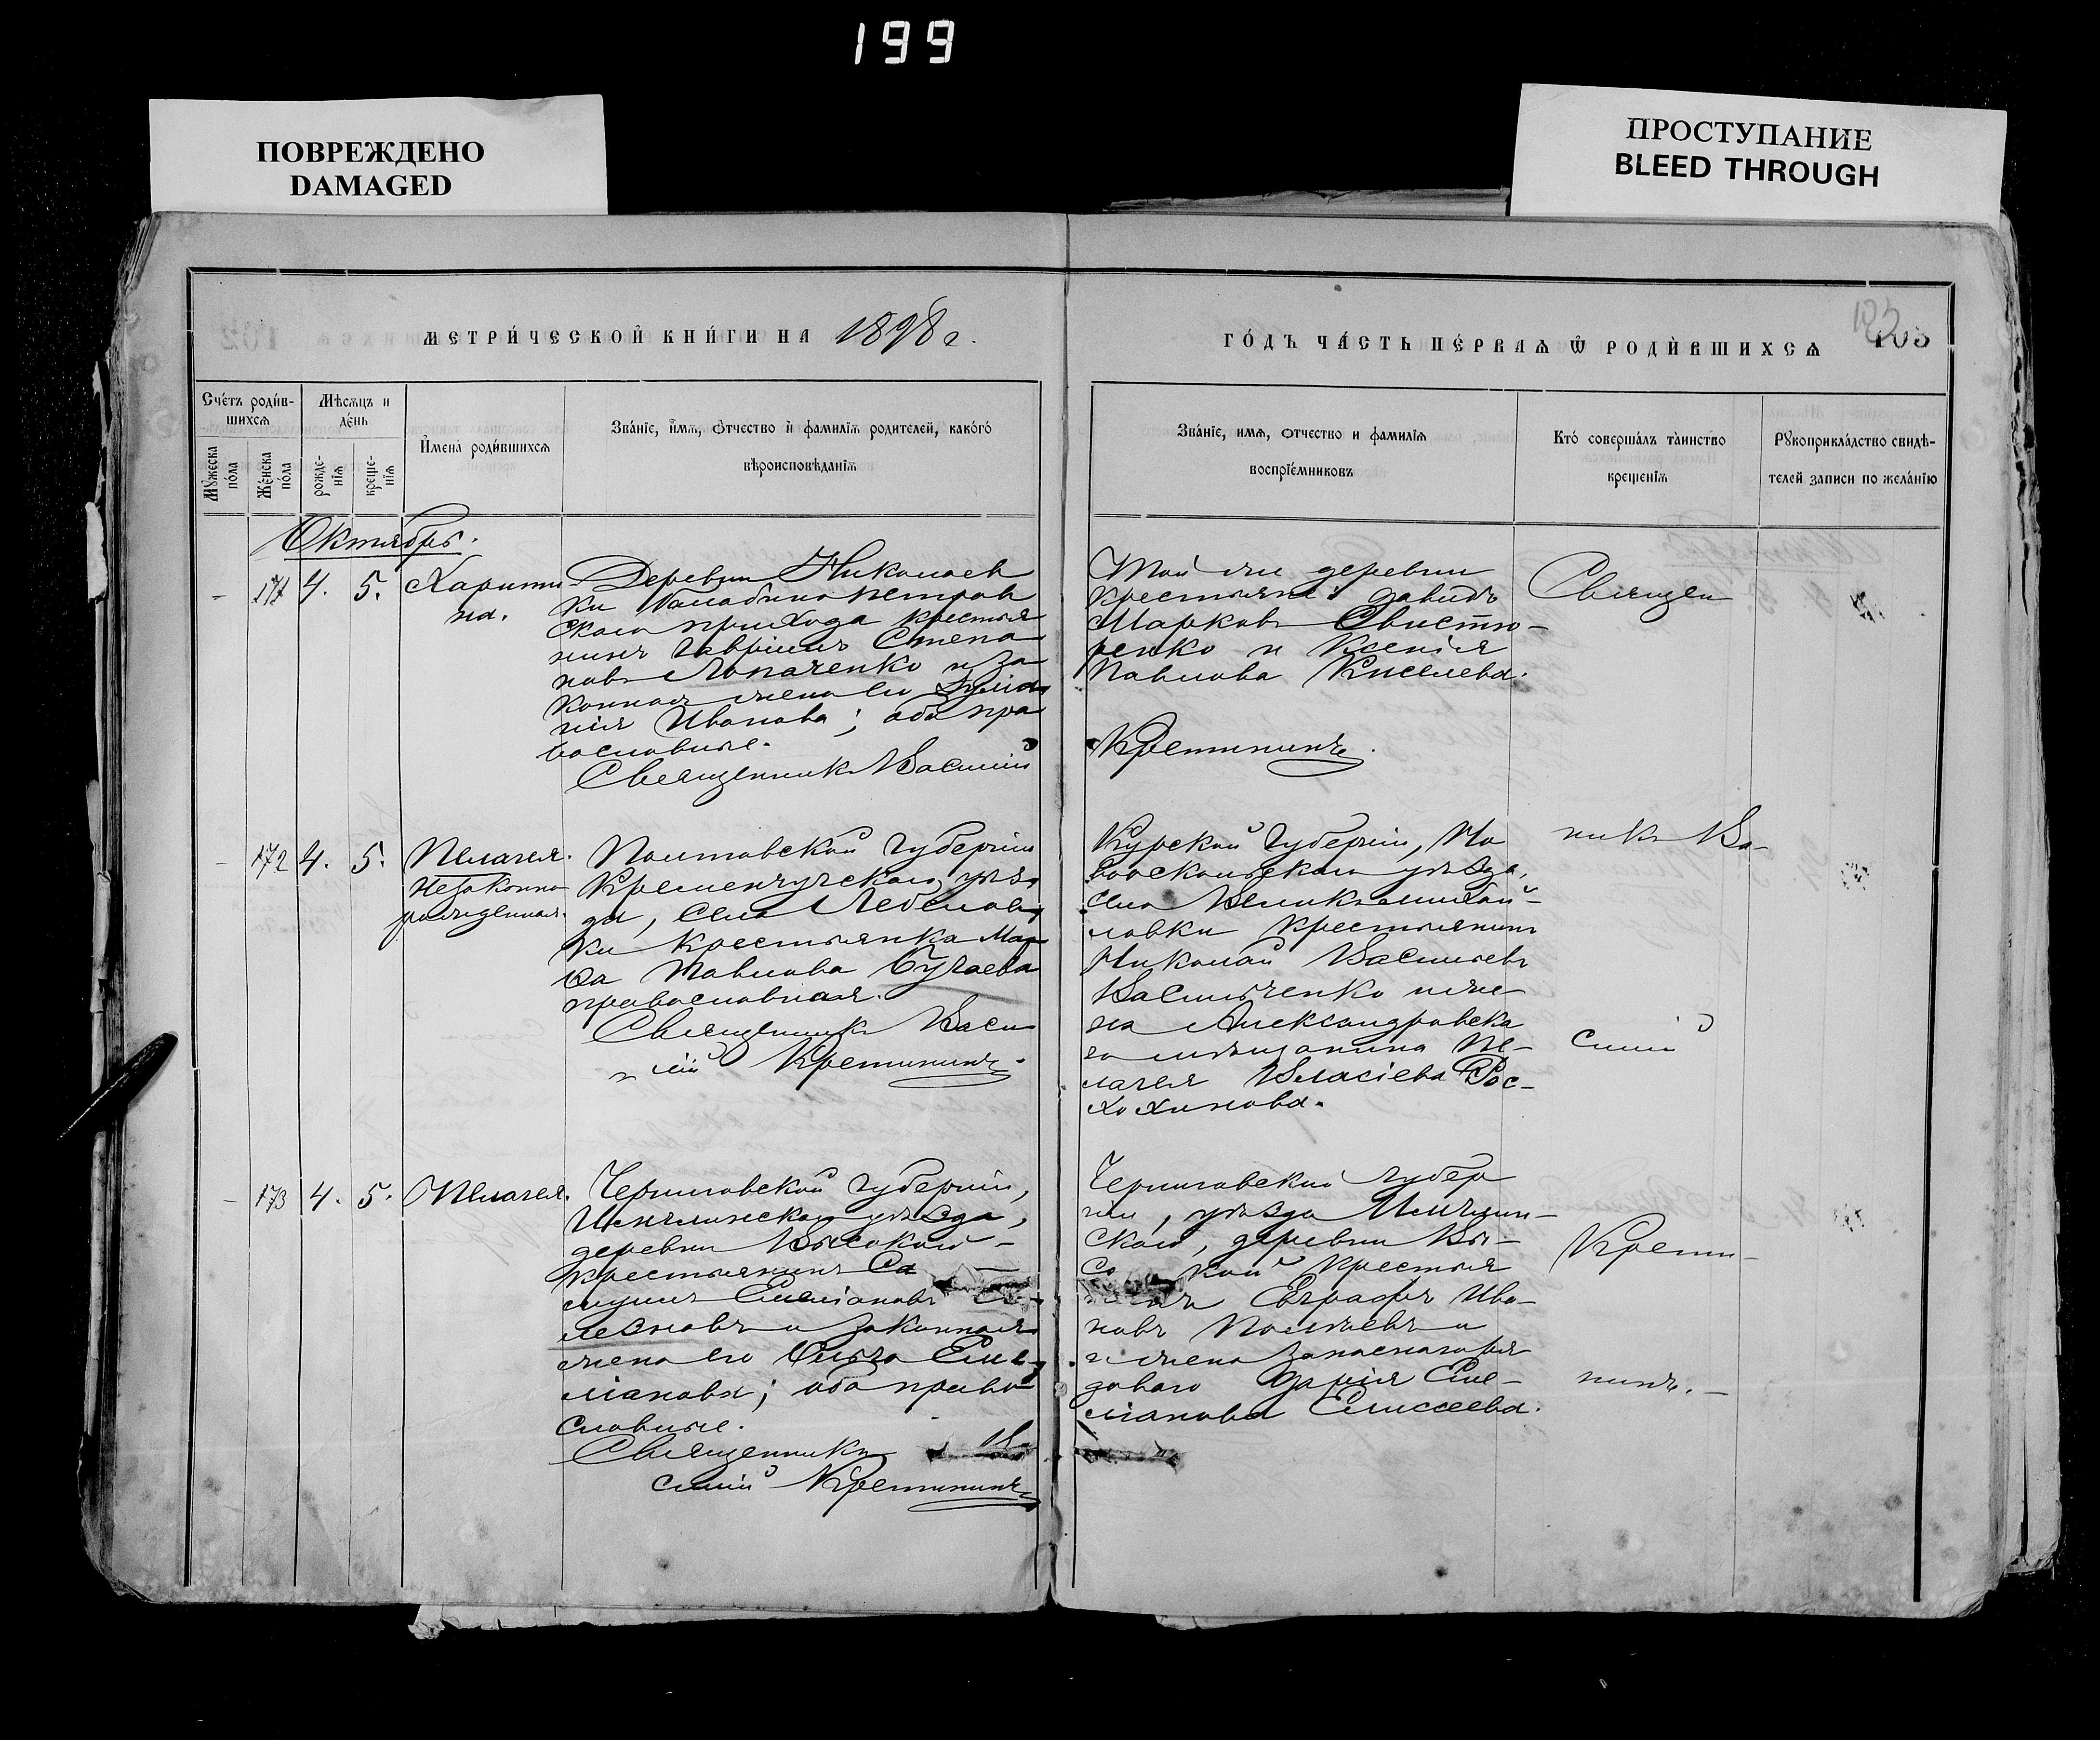 199
ПОВРЕЖДЕНО
DAMAGED
ПРОСТУПАНИЕ
BLEED THROUGH
МЕТРИ́ЧЕСКОЙ КНИ́ГИ НА 1898 г.
ГО́ДЪ ЧА́СТЬ ПЕ́РВАѦ Ѿ РОДИ́ВШИХСѦ
103
Счетъ роди́в-
шихсѧ
Мѣсѧцъ и
де́нь
Мꙋжеска по́ла
Же́нска по́ла
рожде-нїѧ
креще-нїѧ
И҆мена̀ роди́вшихсѧ
Зва́нїе, и҆́мѧ, ѻ҆́тчество и҆ фамилїѧ родителей, како́гѡ
вѣроисповѣ́данїѧ
Зва́нїе, имѧ, ѻтчество и фамилїѧ
воспрїе́мниковъ
Кто̀ соверша́лъ та́инство
креще́нїѧ
Рꙋкоприкла́дство свидѣ́-
телей записи по жела́нїю
Октябрь.
- 171 4. 5. Харити
на.
Деревни Николаев
ки Балабинопетров
скаго прихода крестья
нинъ Гавріилъ Степа
новъ Лопаченко и за
конная жена его
нія Иванова; оба пра
вославные.
Священникъ Василій
Той же деревни
крестьяне: Давидъ
Марковъ Свисто-
ренко и Ксенія
Павлова Киселева.
Кретининъ.
Священ
- 172 4. 5. Пелагея.
незаконно
рожденная.
Полтавской губерніи
Кременчугскаго уѣз
да, села
ки крестьянка Мар
ѳа Павлова Бугаева
православная.
Священникъ Васи
лій Кретининъ.
Курской губерніи, Но
вооскольскаго уѣзда,
села Великомихай-
ловки крестьянинъ
Николай Васильевъ
Васильченко и же
на Александровска
го мѣщанина Пе-
лагея Власіева Рос-
хохинова.
никъ Ва-
силій
- 173 4. 5. Пелагея.
Черниговской губерніи,
уѣзда,
деревни Высокой
крестьянинъ Са
муилъ Емеліановъ
лезневъ и законная
жена его Ольга Еме
ліанова; оба право
славные.
Священникъ Ва
силій Кретининъ
Черниговской губер
ніи, уѣзда Мглин-
скаго, деревни Вы-
со кой крестья
Евграфъ Ива-
новъ и
жена запаснаго ря
доваго Дарія Еме-
ліанова Елисеева.
Крети-
нинъ.